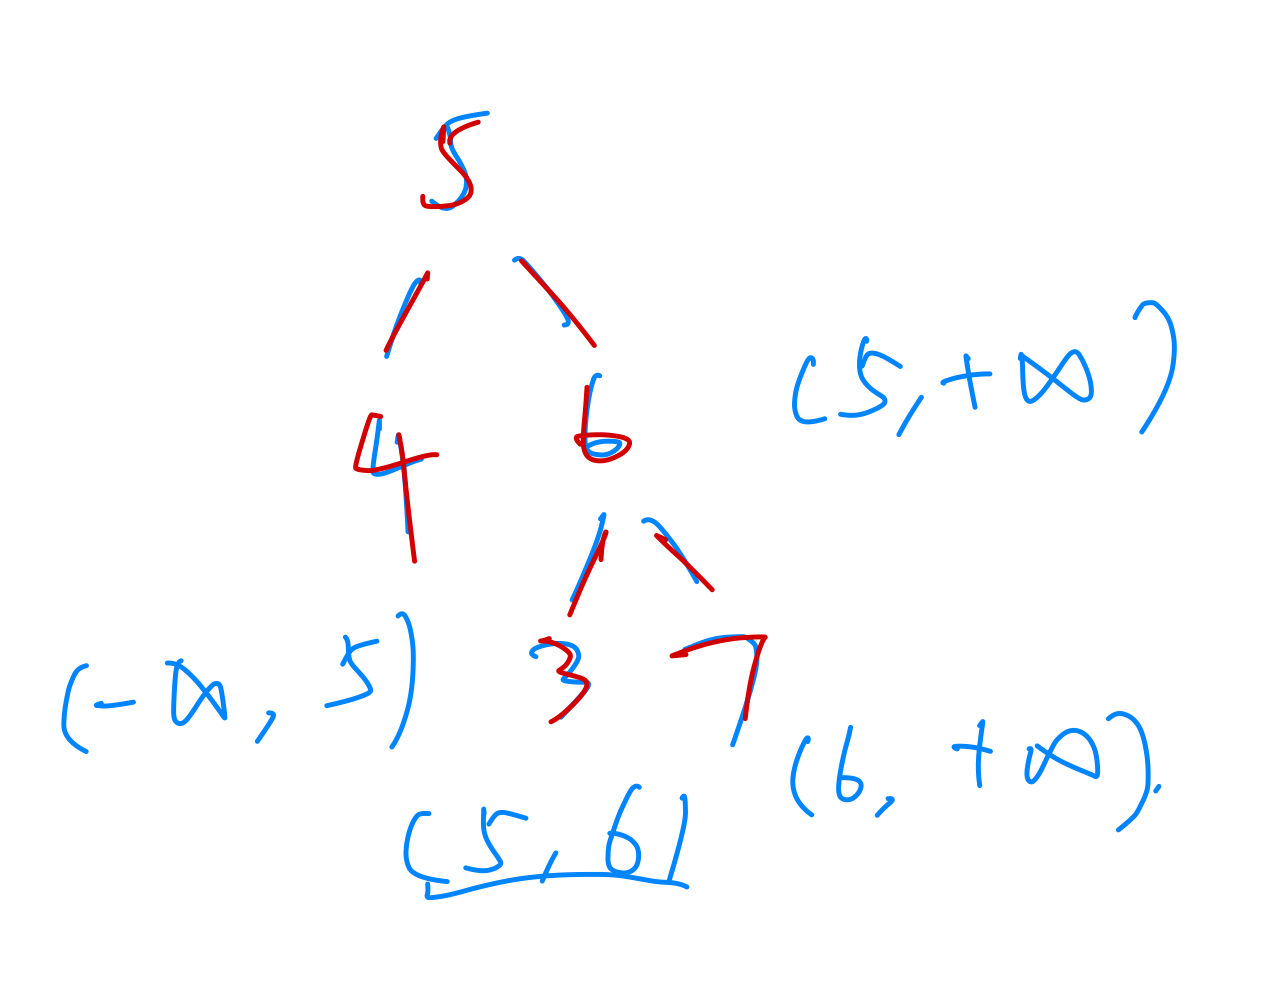 5
4 6
(5, +∞)
3 7
(-∞, 5)
(6, +∞).
(5, 6)